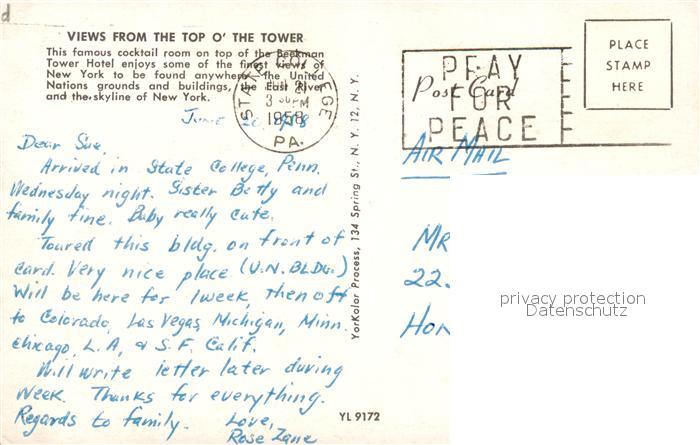 VIEWS FROM THE TOP O' THE TOWER
This famous cocktail room on top of the Beekman
Tower Hotel enjoys some of the finest views of
New York to be found anywhere. The United
Nations grounds and buildings, the East River
and the skyline of New York.
STATE COLLEGE
JUN 21
3 30 PM
1958
PA.
Post Card
PRAY
FOR
PEACE
PLACE
STAMP
HERE
June 20, 1958
Dear Sue,
Arrived in State College, Penn.
Wednesday night. Sister Betty and
family fine. Baby really cute.
Toured this bldg. on front of
card. Very nice place (U.N. BLDG.)
Will be here for 1 week, then off
to Colorado, Las Vegas, Michigan, Minn.
Chicago, L.A, & S.F. Calif.
Will write letter later during
week. Thanks for everything.
Regards to family. Love,
Rose Zane
YorKolor Process, 134 Spring St., N. Y. 12, N. Y.
YL 9172
AIR MAIL
MR
22.
Hon
privacy protection
Datenschutz
d